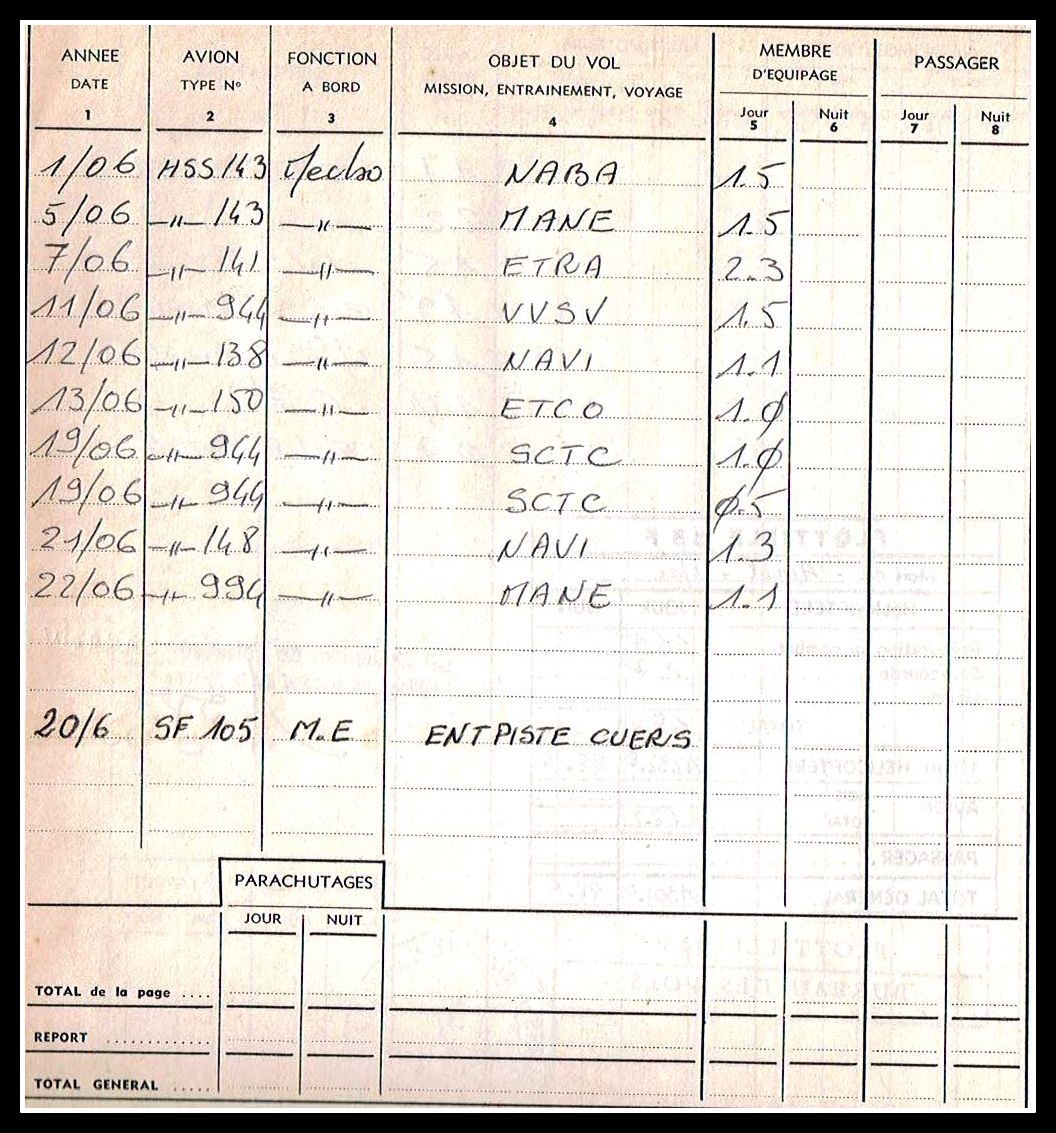 ANNEE AVION FONCTION OBJET DU VOL MEMBRE PASSAGER
DATE TYPE Nº A BORD MISSION, ENTRAINEMENT, VOYAGE D'EQUIPAGE
Jour Nuit Jour Nuit
1 2 3 4 5 6 7 8
1/06 HSS 143 Mecbo NABA 1.5
5/06 -"- 143 -"- MANE 1.5
7/06 -"- 141 -"- ETRA 2.3
11/06 -"- 944 -"- VVSV 1.5
12/06 -"- 138 -"- NAVI 1.1
13/06 -"- 150 -"- ETCO 1.Ø
19/06 -"- 944 -"- SCTC 1.Ø
19/06 -"- 944 -"- SCTC Ø.5
21/06 -"- 148 -"- NAVI 1.3
22/06 -"- 994 -"- MANE 1.1
20/6 SF 105 M.E ENT PISTE CUERS
PARACHUTAGES
JOUR NUIT
TOTAL de la page ....
REPORT ............
TOTAL GENERAL .....